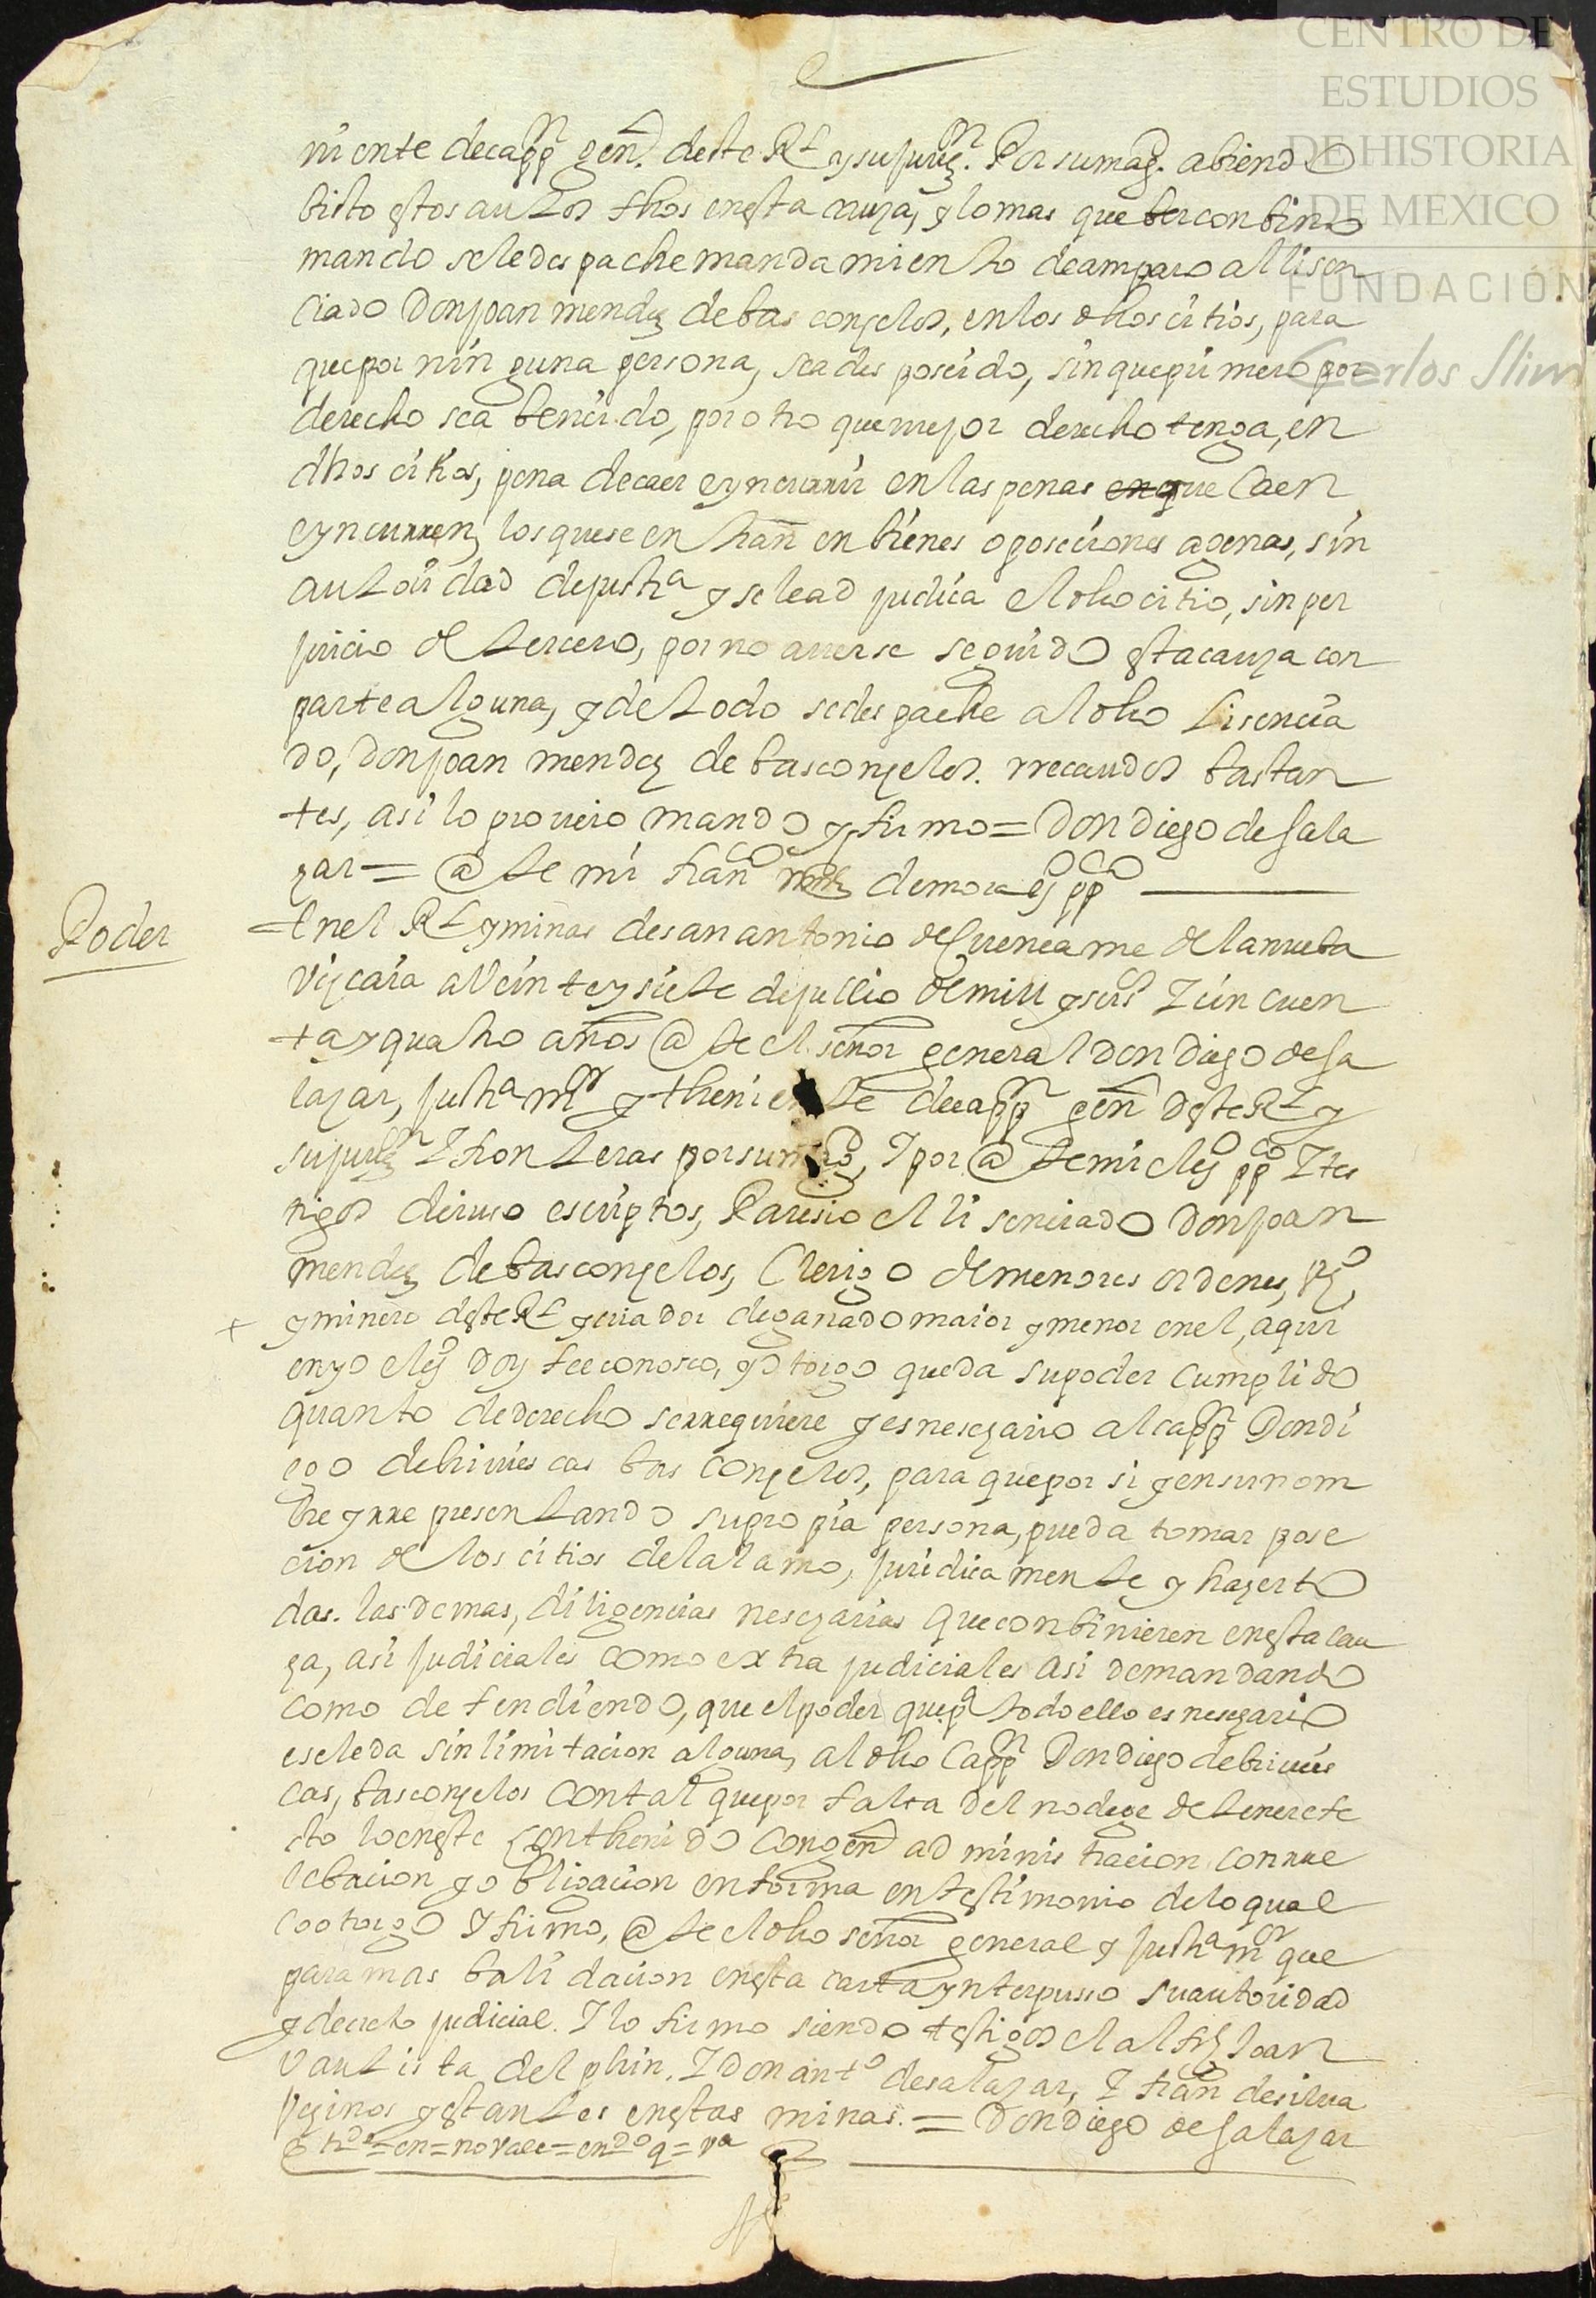 CENTRO DE
ESTUDIOS
DE HISTORIA
DE MEXICO
FUNDACIÓN
Carlos Slim
niente de cappn genl. deste Rl y su jurizn. Por su magd. abiendo
bisto estos autos fhos en esta cauza, y lo mas que ber conbino
mando se le despache mandamiento de amparo al lisen
ciado Don Joan mendez de basconzelos, en los dhos citios, para
que por ninguna persona, sea des poseido, sin que primero por
derecho sea bencido, por otro que mejor derecho tenga, en
dhos citios, pena de caer e yncurrir en las penas en que Caen
e yncurren, los que se entran en bienes o poseciones agenas, sin
autoridad de justa y se le adjudica el dho citio, sin per
juicio de tercero, por no averse seguido esta cauza con
parte alguna, y de todo se despache al dho Lisencia
do, Don Joan mendez de basconzelos. rrecaudos bastan
tes, asi lo proveio mando y firmo = Don Diego de Sala
zar = @te mi fran de mora esno ppco
Poder
= En el Rl y minas de san antonio de Cuencame de la nueba
Vizcaia a Veinte y siete de jullio de mill y seiss Y cin cuen
ta y quatro años @te el señor general Don Diego de Sa
lazar, justa mor y theniente de cappn genl deste Rl y
su jurizn Y fronteras por su magd, Y por @te mi el esno ppco Y tes
tigos de iuso escriptos, Paresio el lisenciado Don Joan
mendez de basconzelos, Clerigo de menores ordenes, Vzo,
+ y minero deste Rl y criador de ganado maior y menor en el, a qui
en yo el esno Doy fee conosco, y otorgo que da su poder cumplido
quanto de derecho se rrequiere y es nesezario al cappn Don Di
ego de brivies cas bas conzelos, para que por si y en su nom
bre y rre presentando su propia persona, pueda tomar pose
cion de los citios del alamo, juridicamente y hazer to
das. las demas, diligencias nesezarias que conbinieren en esta cau
za, asi judiciales como extra judiciales asi demandando
como defendiendo, que el poder que pa todo ello es nesezario
ese le da sin limitacion alguna, al dho Cappn Don Diego de brivies
cas, basconzelos Con tal que por falta del no deje de tener efe
cto lo en este Conthenido Con genl administracion, con rre
lebacion y obligacion en forma en testimonio de lo qual
lo otorgo Y firmo, @te el dho señor general y justa mor que
para mas balidacion en esta carta ynterpusso su autoridad
y decreto judicial. Y lo firmo siendo testigos el alfz Joan
Vautista delphin, Y Don anto de salazar, Y fran de silva
Vezinos y estantes en estas minas. = Don Diego de Salazar
tdo = en = no vale = endo q = va